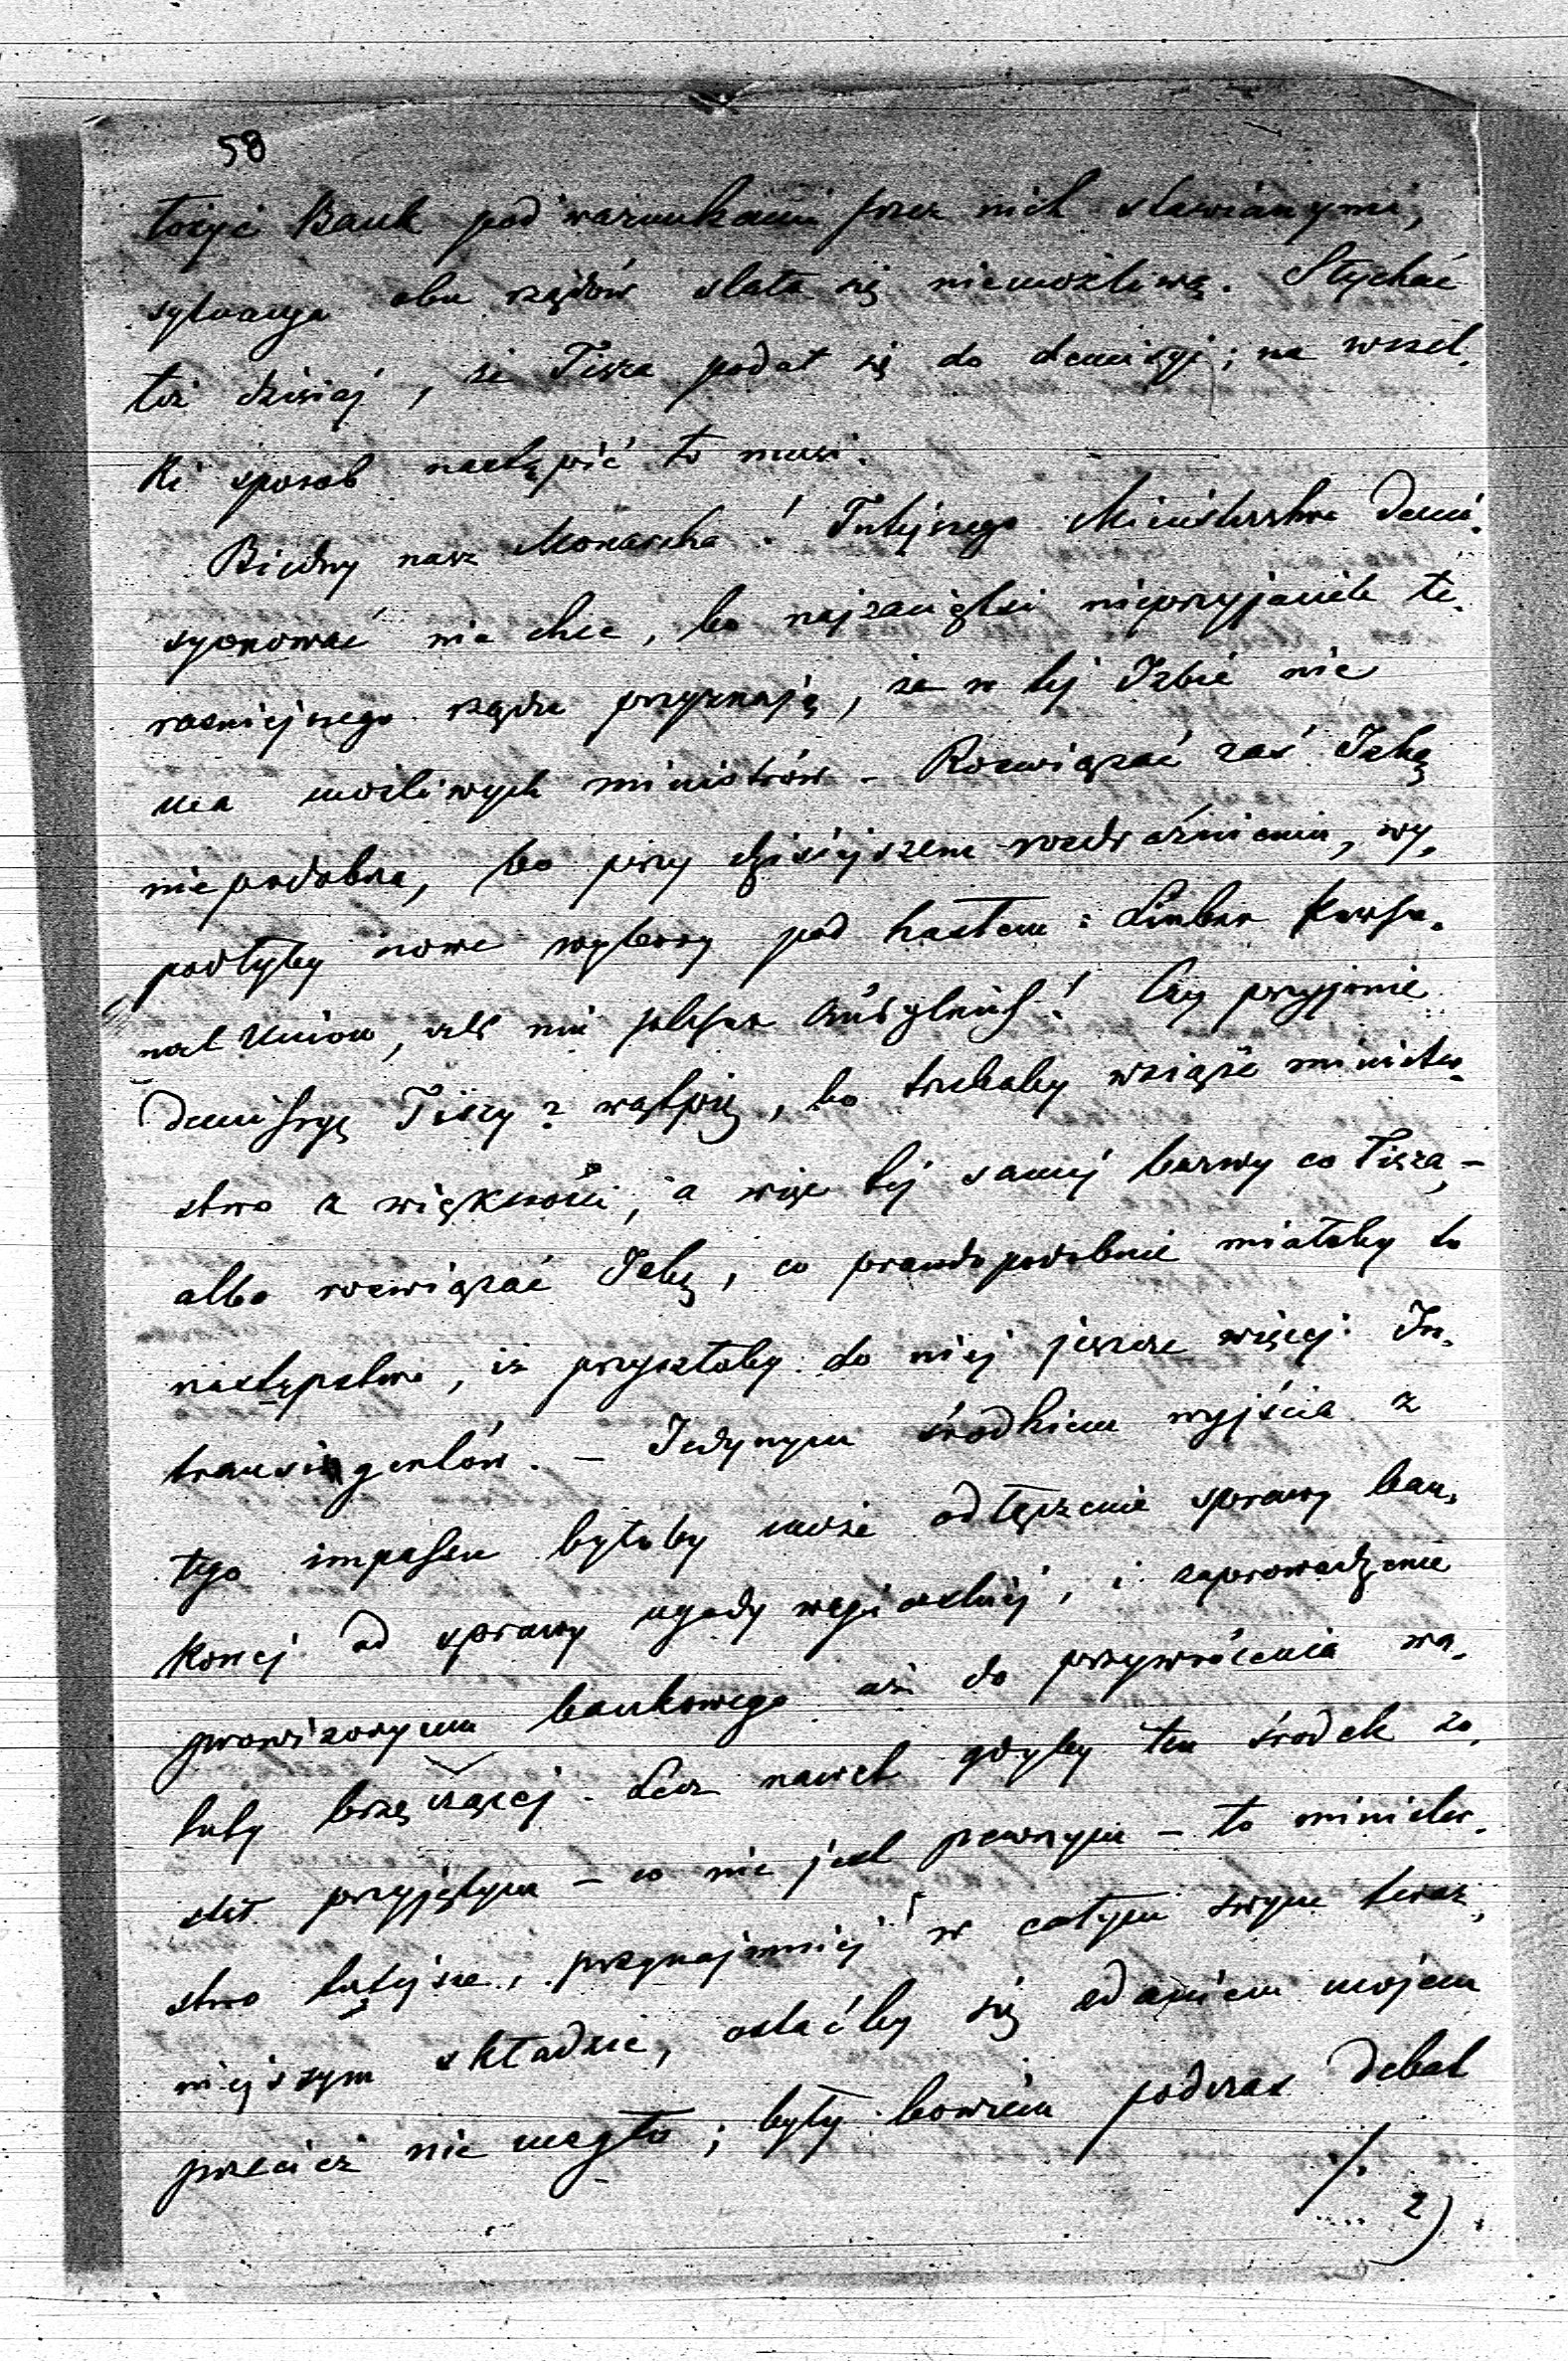 58
łożyć Bank pod warunkami przez nich stawianymi,
sytuacya obu rządów stała się niemożliwą. Słychać
też dzisiaj, że Tisza podał się do demisyi; na wszel-
ki sposób nastąpić to musi.
Biedny nasz Monarcha! Tutejszego Ministerstwa demi-
syonować nie chce, bo najzaciętsi nieprzyjaciele te-
raźniejszego rządu przyznają, że w tej Izbie nie
ma możliwych ministrów. Rozwiązać zaś Izbę
niepodobna, bo przy dzisiejszem rozdrażnieniu, wy-
padłyby nowe wybory pod hasłem: Lieber Perso-
nal Union, als ein solcher Ausgleich! Czy przyjmie
demissyę Tiszy? wątpię, bo trzebaby wziąść minister-
stwo z większości, a więc tej samej barwy co Tisza, –
albo rozwiązać Izbę, co prawdopodobnie miałoby to
następstwo, iż przyszłoby do niej jeszcze więcej In-
transingentów. – Jedynym środkiem wyjścia z
tego impassu byłoby może odłączenie sprawy ban-
kowej od sprawy ugody węgierskiej, i zaprowadzenie
prowizoryum bankowego aż do przywrócenia wa-
luty brzęczącej. Lecz nawet gdyby ten środek zo-
stał przyjętym – co nie jest pewnym – to minister-
stwo tutejsze, przynajmniej w całym swym teraź-
niejszym składzie, ostaćby się zdaniem mojem
przecież nie mogło; były bowiem podczas debat
./.
2)